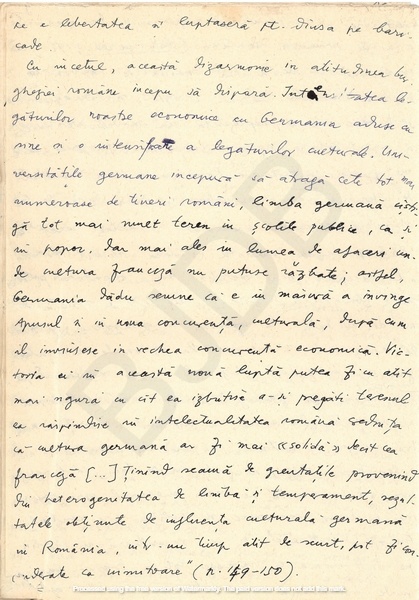 ce e libertatea și luptaseră pt. dînsa pe bari-
cade.
Cu încetul, această dizarmonie în atitudinea bur-
gheziei române începu să dispară. Intensitatea le-
găturilor noastre economice cu Germania aduse cu
sine și o intensificare a legăturilor culturale. Uni-
versitățile germane începură să atragă cete tot mai
numeroase de tineri români, limba germană cîști-
gă tot mai mult teren în școlile publice, ca și
în popor. Dar mai ales în lumea de afaceri un-
de cultura franceză nu putuse răzbate; astfel,
Germania dădu semne că e în măsură a învinge
Apusul și în noua concurență, culturală, după cum
îl învinsese în vechea concurență economică. Vic-
toria ei în această nouă luptă putea fi cu atît
mai sigură cu cît ea izbutise a-și pregăti terenul
ca răspîndise în intelectualitatea română credința
că cultura germană ar fi mai «solidă» decît cea
franceză [...] Ținînd seamă de greutățile provenind
din heterogenitatea de limbă și temperament, rezul-
tatele obținute de influența culturală germană
în România, într-un timp atît de scurt, pot fi con-
siderate ca uimitoare" (p. 149-150).